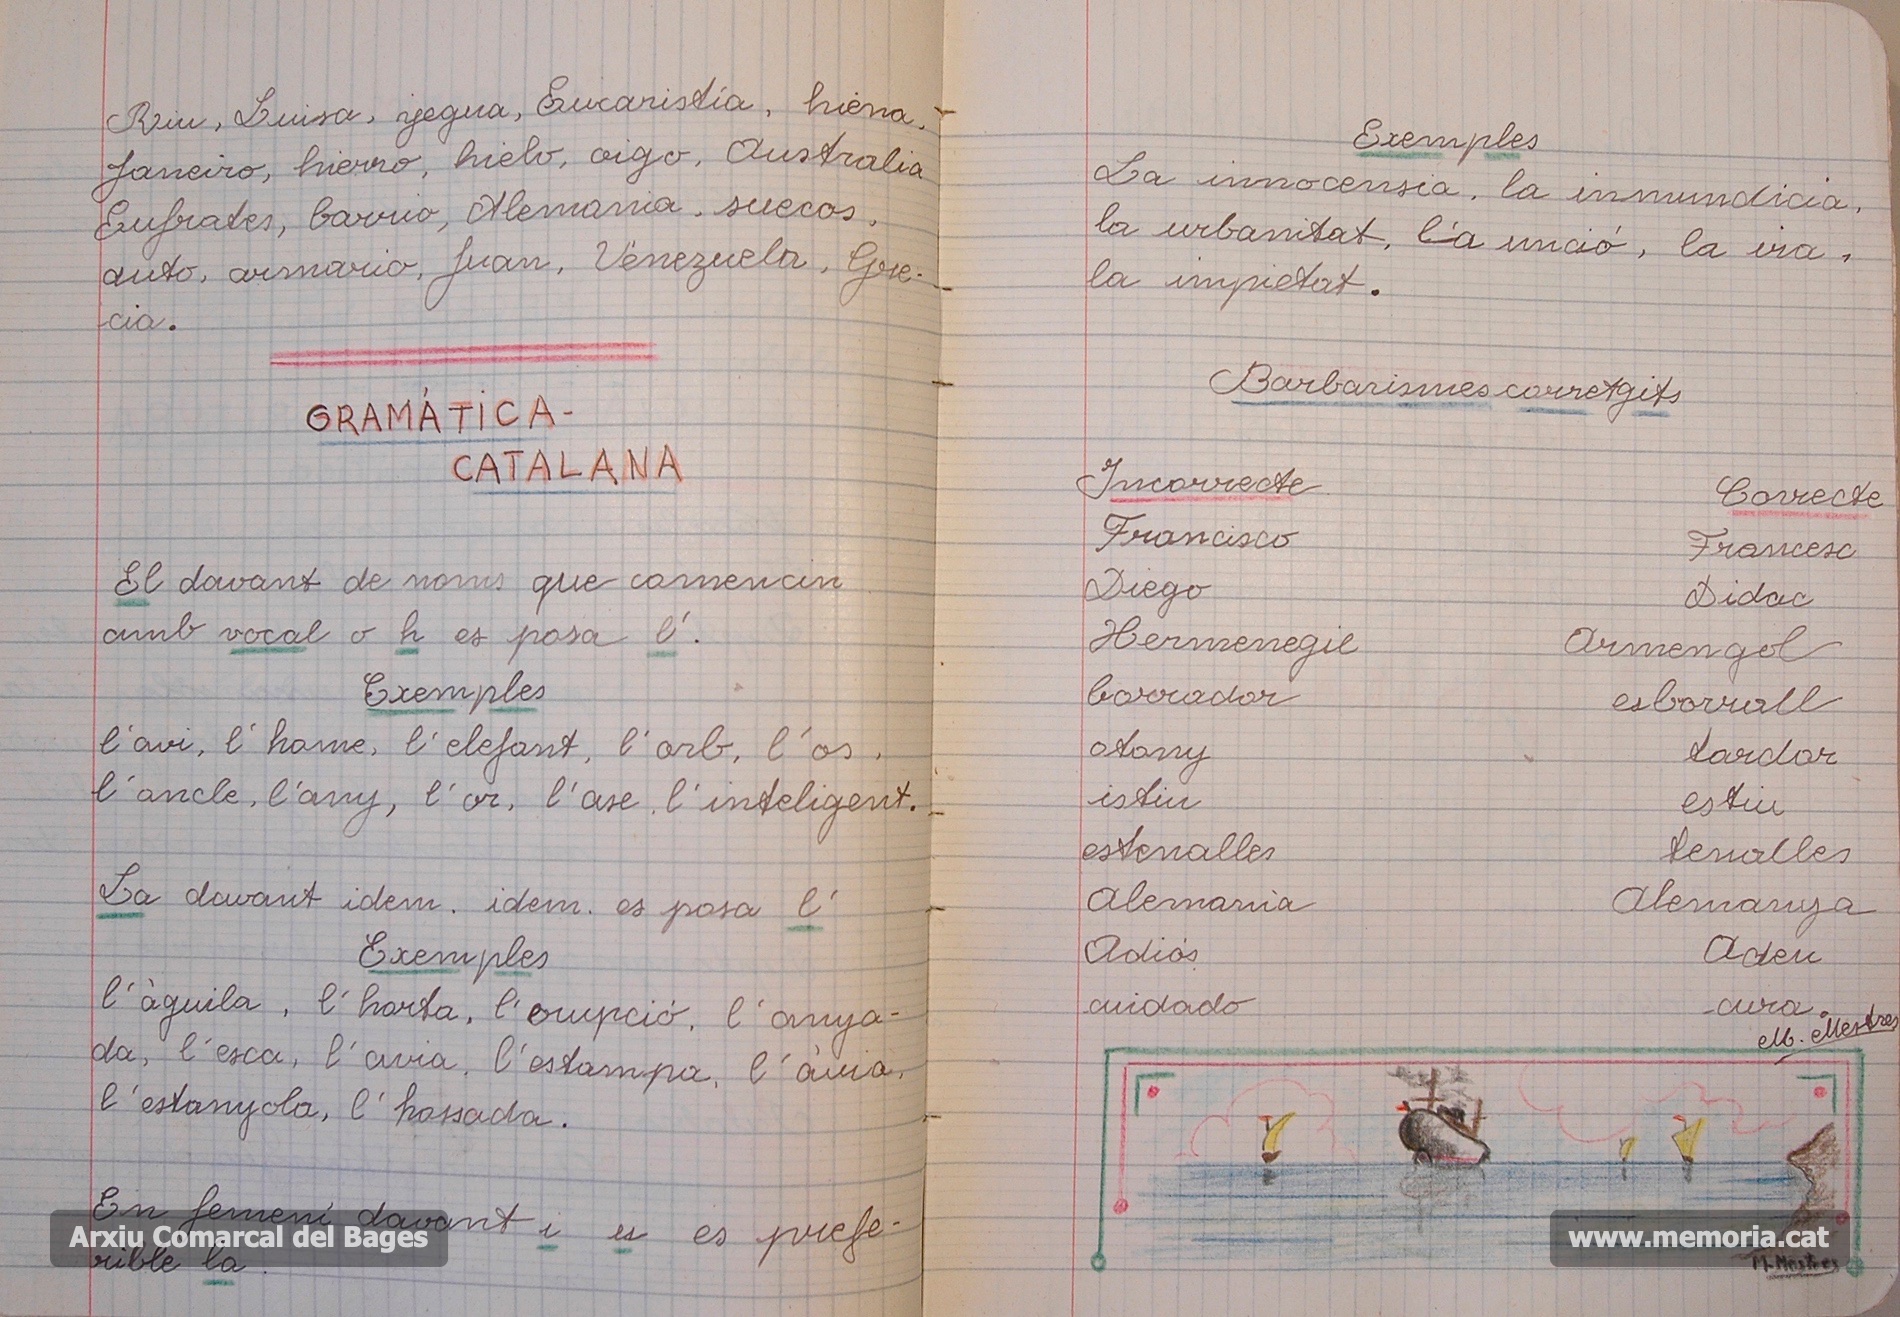 Riu, Luisa, yegua, Eucaristía, hiena,
Janeiro, hierro, hielo, oigo, Australia
Eufrates, barrio, Alemania, suecos,
auto, armario, Juan, Venezuela, Gre-
cia.
GRAMÀTICA-
CATALANA
El davant de noms que comencin
amb vocal o h es posa l'.
Exemples
l'avi, l'home, l'elefant, l'orb, l'os,
l'oncle, l'any, l'or, l'ase, l'inteligent.
La davant idem. idem. es posa l'
Exemples
l'àguila, l'horta, l'erupció, l'anya-
da, l'esca, l'avia, l'estampa, l'àvia,
l'estanyola, l'hossada.
En femení davant i u es prefe-
rible la.
Exemples
La innocensia, la inmundicia,
la urbanitat, l'a unció, la ira,
la impietat.
Barbarismes corretgits
Incorrecte Correcte
Francisco Francesc
Diego Didac
Hermenegil Armengol
borrador esborrall
otony tardor
istiu estiu
estenalles tenalles
Alemania Alemanya
Adiós Adeu
cuidado cura.
M. Mestres
M. Mestres
Arxiu Comarcal del Bages
www.memoria.cat